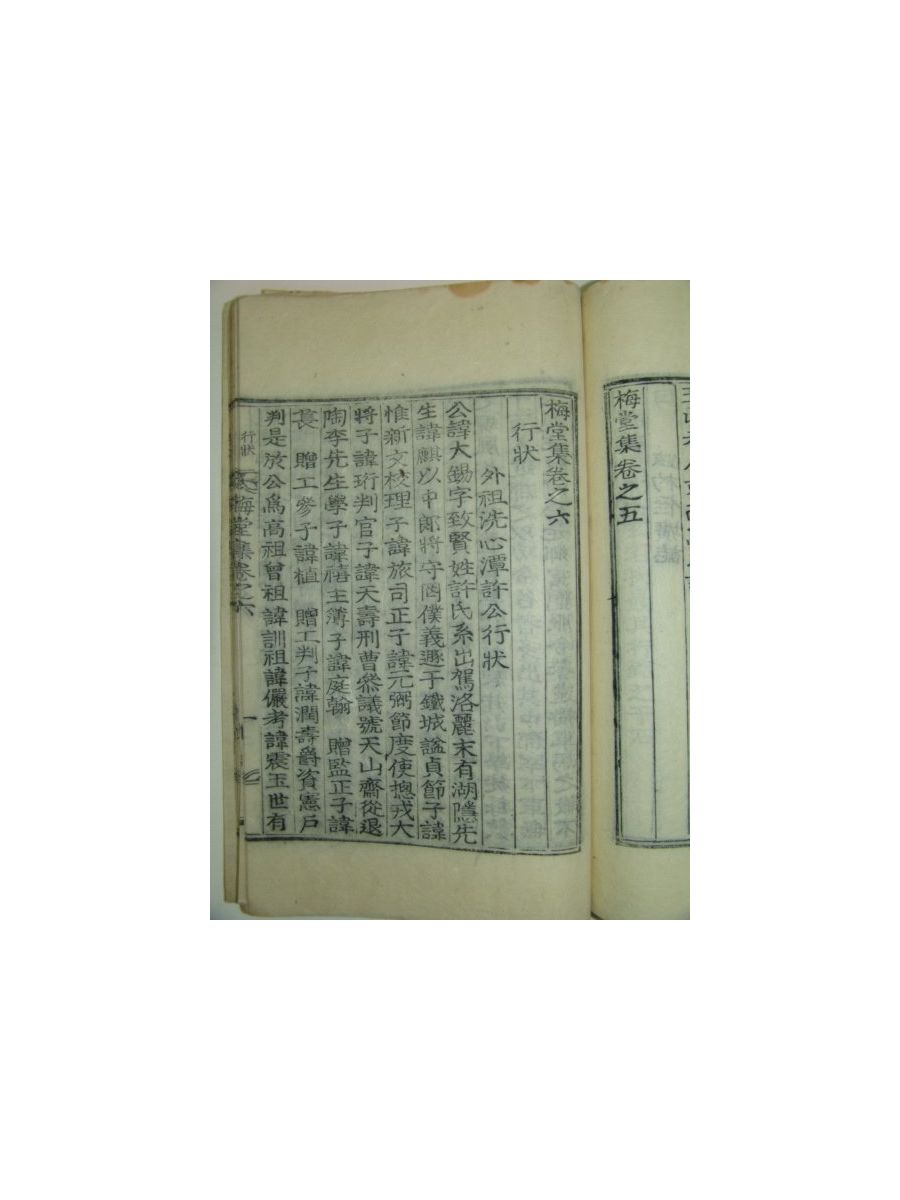 梅堂集卷之五
梅堂集卷之六
行狀
外祖洗心潭許公行狀
公諱大錫字致賢姓許氏系出駕洛麗末有湖隱先
生諱麒以中郞將守罔僕義遯于鐵城謚貞節子諱
惟新文校理子諱旅司正子諱元弼節度使摠戎大
將子諱珩判官子諱天壽刑曹叅議號天山齋從退
陶李先生學子諱禧主簿子諱庭翰 贈監正子諱
長 贈工參子諱植 贈工判子諱潤壽爵資憲戶
判是於公爲高祖曾祖諱訓祖諱儼考諱震玉世有
行狀
梅堂集卷之六
一